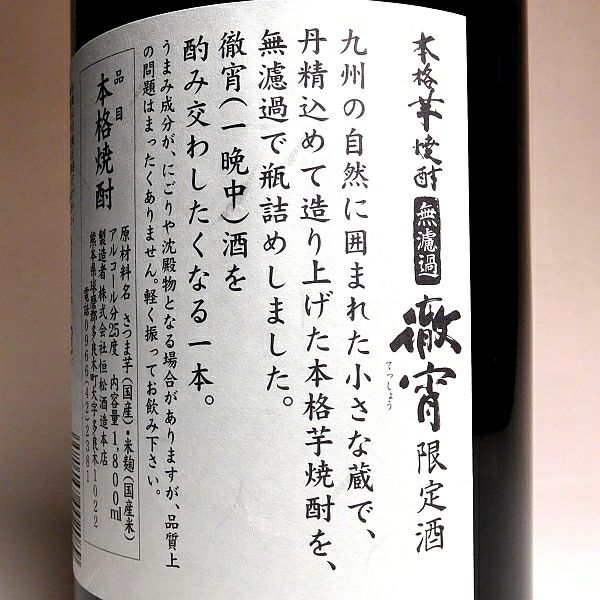 本格芋焼酎 無濾過 徹宵 限定酒
てっしょう
九州の自然に囲まれた小さな蔵で、
丹精込めて造り上げた本格芋焼酎を、
無濾過で瓶詰めしました。
徹宵(一晩中)酒を
酌み交わしたくなる一本。
うまみ成分が、にごりや沈殿物となる場合がありますが、品質上
の問題はまったくありません。軽く振ってお飲み下さい。
品目
本格焼酎
原材料名 さつま芋(国産)・米麹(国産米)
アルコール分25度 内容量1,800ml
製造者 株式会社恒松酒造本店
熊本県球磨郡多良木町大字多良木1022
電話0966(42)2381